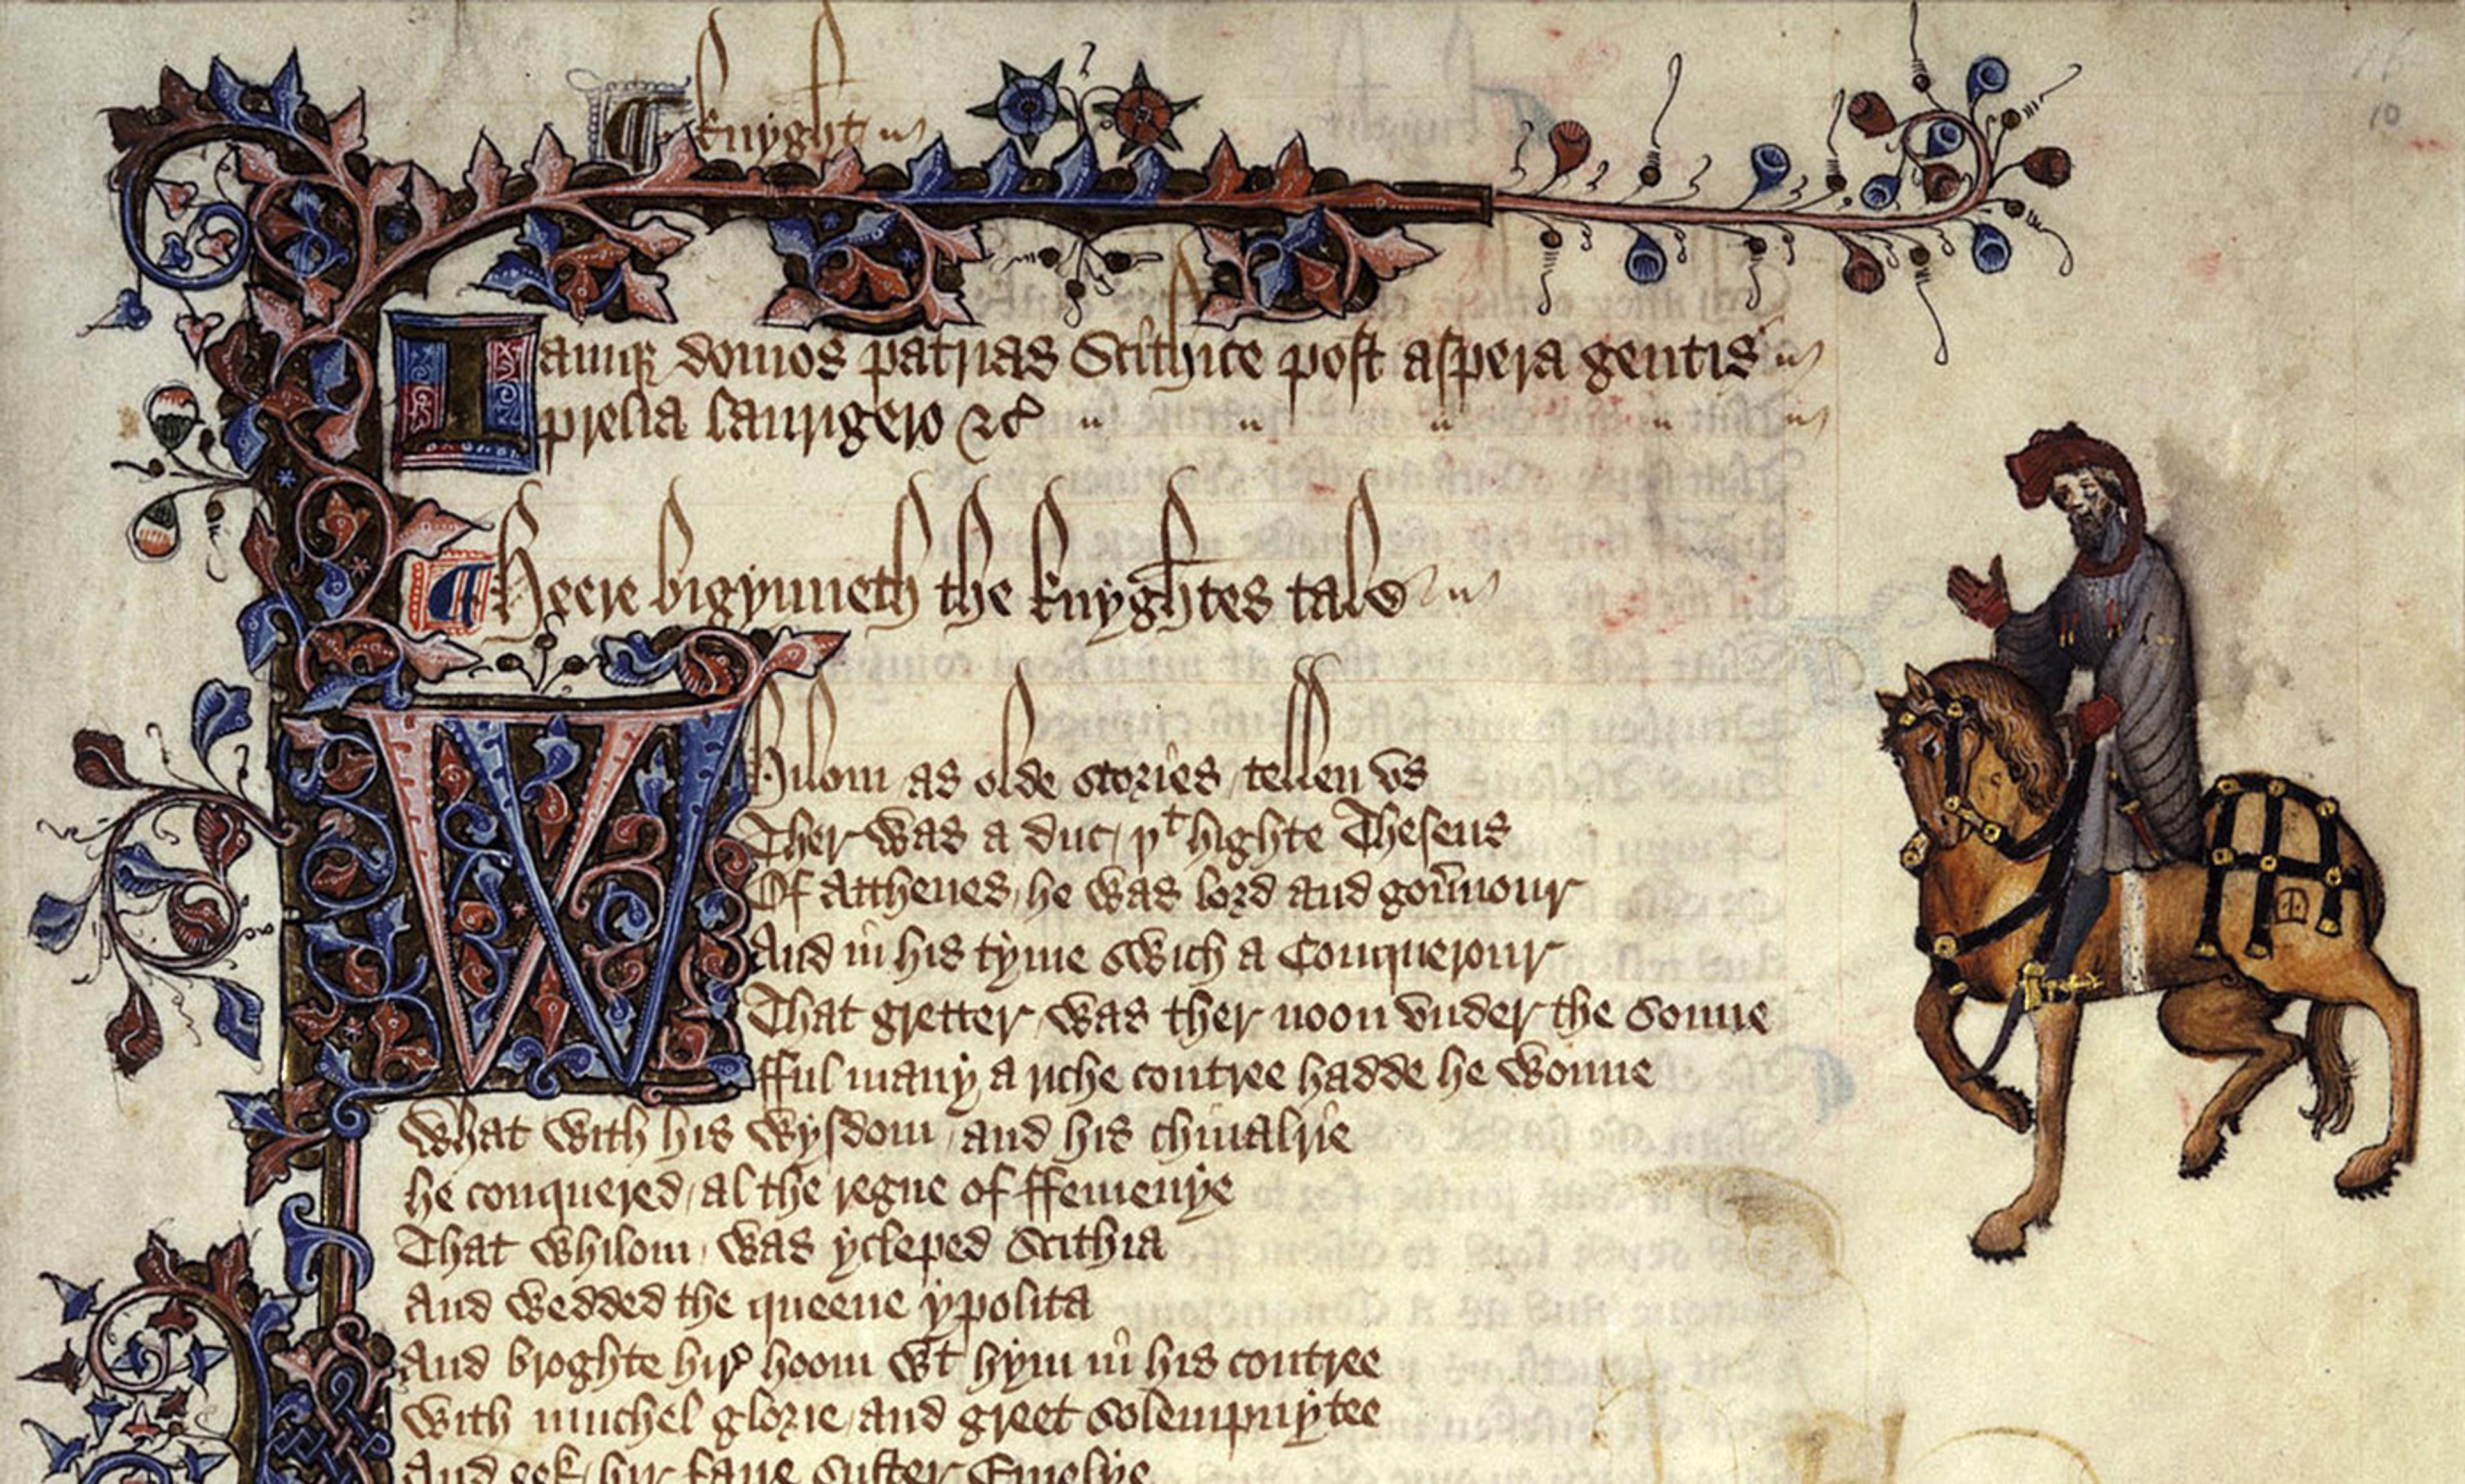 ¶ Knyght
Iamque domos patrias Scithice post aspera gentis
prelia laurigero &c
¶ Heere bigynneth the knyghtes tale
Whilom as olde stories / tellen vs
Ther was a duc / þt highte Theseus
Of Atthenes / he was lord and gou̅nour
And in his tyme swich a Conquerour
That gretter was ther noon vnder the sonne
fful many a riche contree hadde he wonne
What with his wysdom / and his chiualrie
he conquered / al the regne of ffemenye
That whilom / was ycleped Scithia
And wedded the queene ypolita
And broghte hire hoom wt hym in his contree
With muchel glorie / and greet solempnytee
And eek / hir faire suster Emelye
10